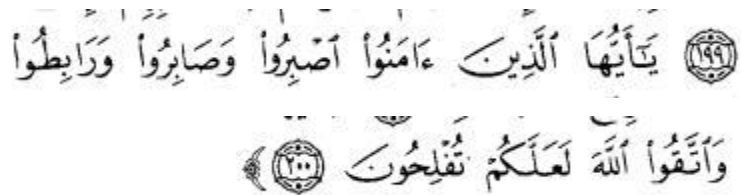 ﴿١٩٩﴾ يَـٰٓأَيُّهَا ٱلَّذِينَ ءَامَنُوا۟ ٱصْبِرُوا۟ وَصَابِرُوا۟ وَرَابِطُوا۟
وَٱتَّقُوا۟ ٱللَّهَ لَعَلَّكُمْ تُفْلِحُونَ ﴿٢٠٠﴾